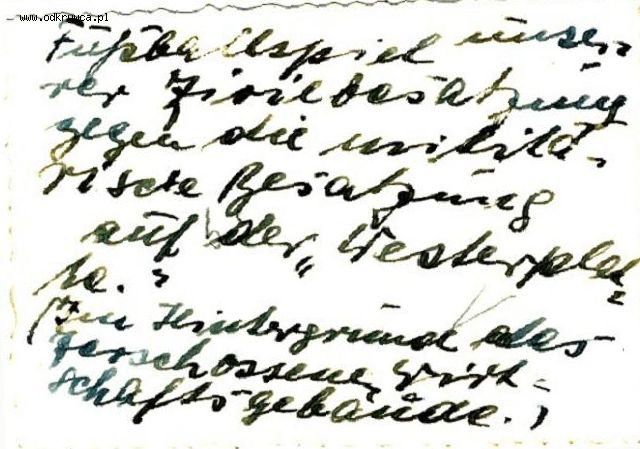 www.odkrywca.pl
Fußballspiel unse-
rer Zivilbesatzung
gegen die militä-
rische Besatzung
auf der „Westerplat-
te."
(Im Hintergrund das
zerschossene Wirt-
schaftsgebäude.)